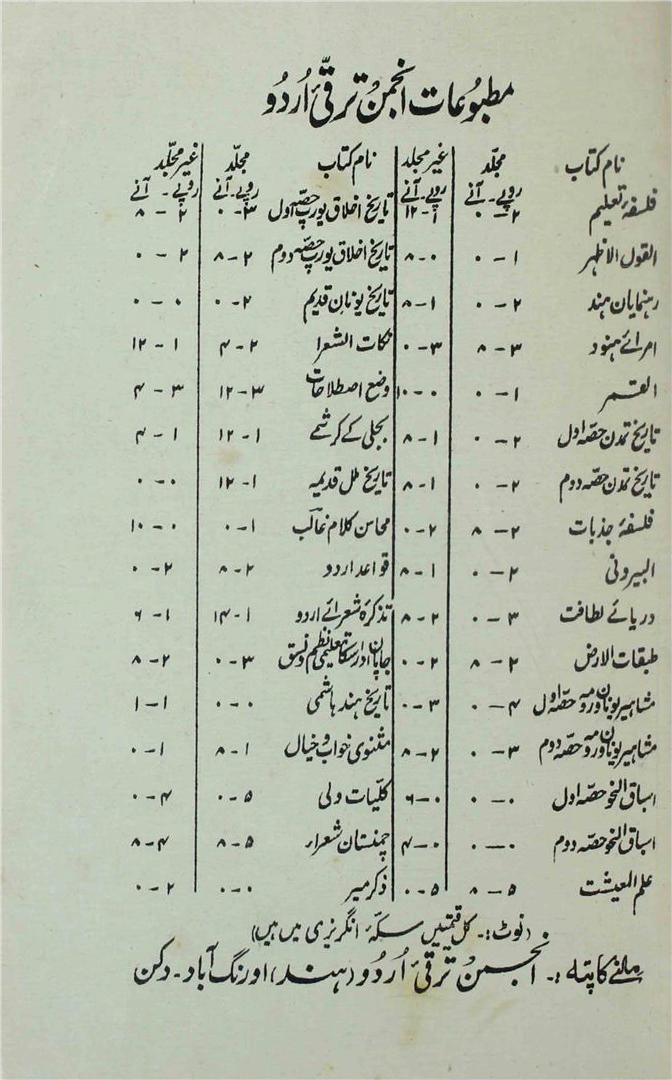 مطبوعات انجمن ترقیٔ اُردو
نام کتاب مجلّد غیر مجلد نام کتاب مجلّد غیر مجلّد
روپے۔ آنے روپے۔ آنے روپے۔ آنے روپے۔ آنے
فلسفۂ تعلیم ۲-۰ ۱-۱۲ تاریخ اخلاق یورپ حصّہ اول ۳-۰ ۲-۸
القول الاظہر ۱-۰ ۰-۸ تاریخ اخلاق یورپ حصّہ دوم ۲-۸ ۲-۰
رہنمایان ہند ۲-۰ ۱-۸ تاریخ یونان قدیم ۲-۰ ۰-۰
امرائے ہنود ۳-۸ ۳-۰ نکات الشعرا ۲-۴ ۱-۱۲
القمر ۱-۰ ۰-۱۰ وضع اصطلاحات ۳-۱۲ ۳-۴
تاریخ تمدن حصّہ اول ۲-۰ ۱-۸ بجلی کے کرشمے ۱-۱۲ ۱-۴
تاریخ تمدن حصّہ دوم ۲-۰ ۱-۸ تاریخ ملل قدیمہ ۱-۱۲ ۰-۰
فلسفۂ جذبات ۲-۸ ۲-۰ محاسن کلام غالب ۱-۰ ۰-۱۰
البیرونی ۲-۰ ۱-۸ قواعد اردو ۲-۸ ۲-۰
دریائے لطافت ۳-۰ ۲-۸ تذکرۂ شعرائے اردو ۱-۱۴ ۱-۶
طبقات الارض ۲-۸ ۲-۰ جاپان اور اسکا تعلیمی نظم و نسق ۳-۰ ۲-۸
مشاہیر یونان و رومہ حصّہ اول ۴-۰ ۳-۰ تاریخ ہند ہاشمی ۰-۰ ۱-۱
مشاہیر یونان و رومہ حصہ دوم ۳-۰ ۲-۸ مثنوی خواب و خیال ۱-۸ ۱-۰
اسباق النحو حصہ اول ۰-۰ ۰-۶ کلّیات ولی ۵-۰ ۴-۰
اسباق النحو حصہ دوم ۰-۰ ۰-۴ چمنستان شعراء ۵-۸ ۴-۸
علم المعیشت ۵-۸ ۵-۰ ذکر میر ۰-۰ ۲-۰
(نوٹ:۔ کل قیمتیں سکّۂ انگریزی میں ہیں)
ملنے کا پتہ:۔ انجمن ترقیٔ اُردو (ہند) اورنگ آباد۔ دکن